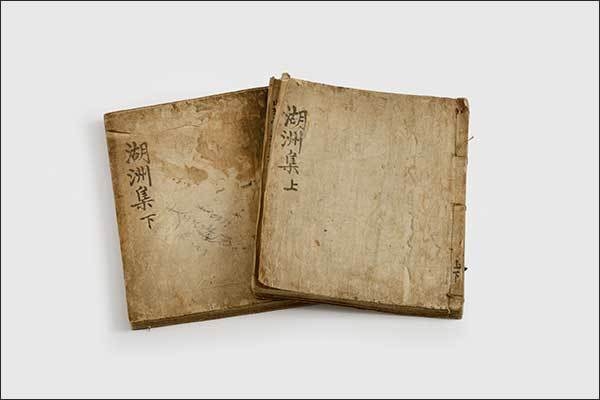 湖洲集下
湖洲集上
上下